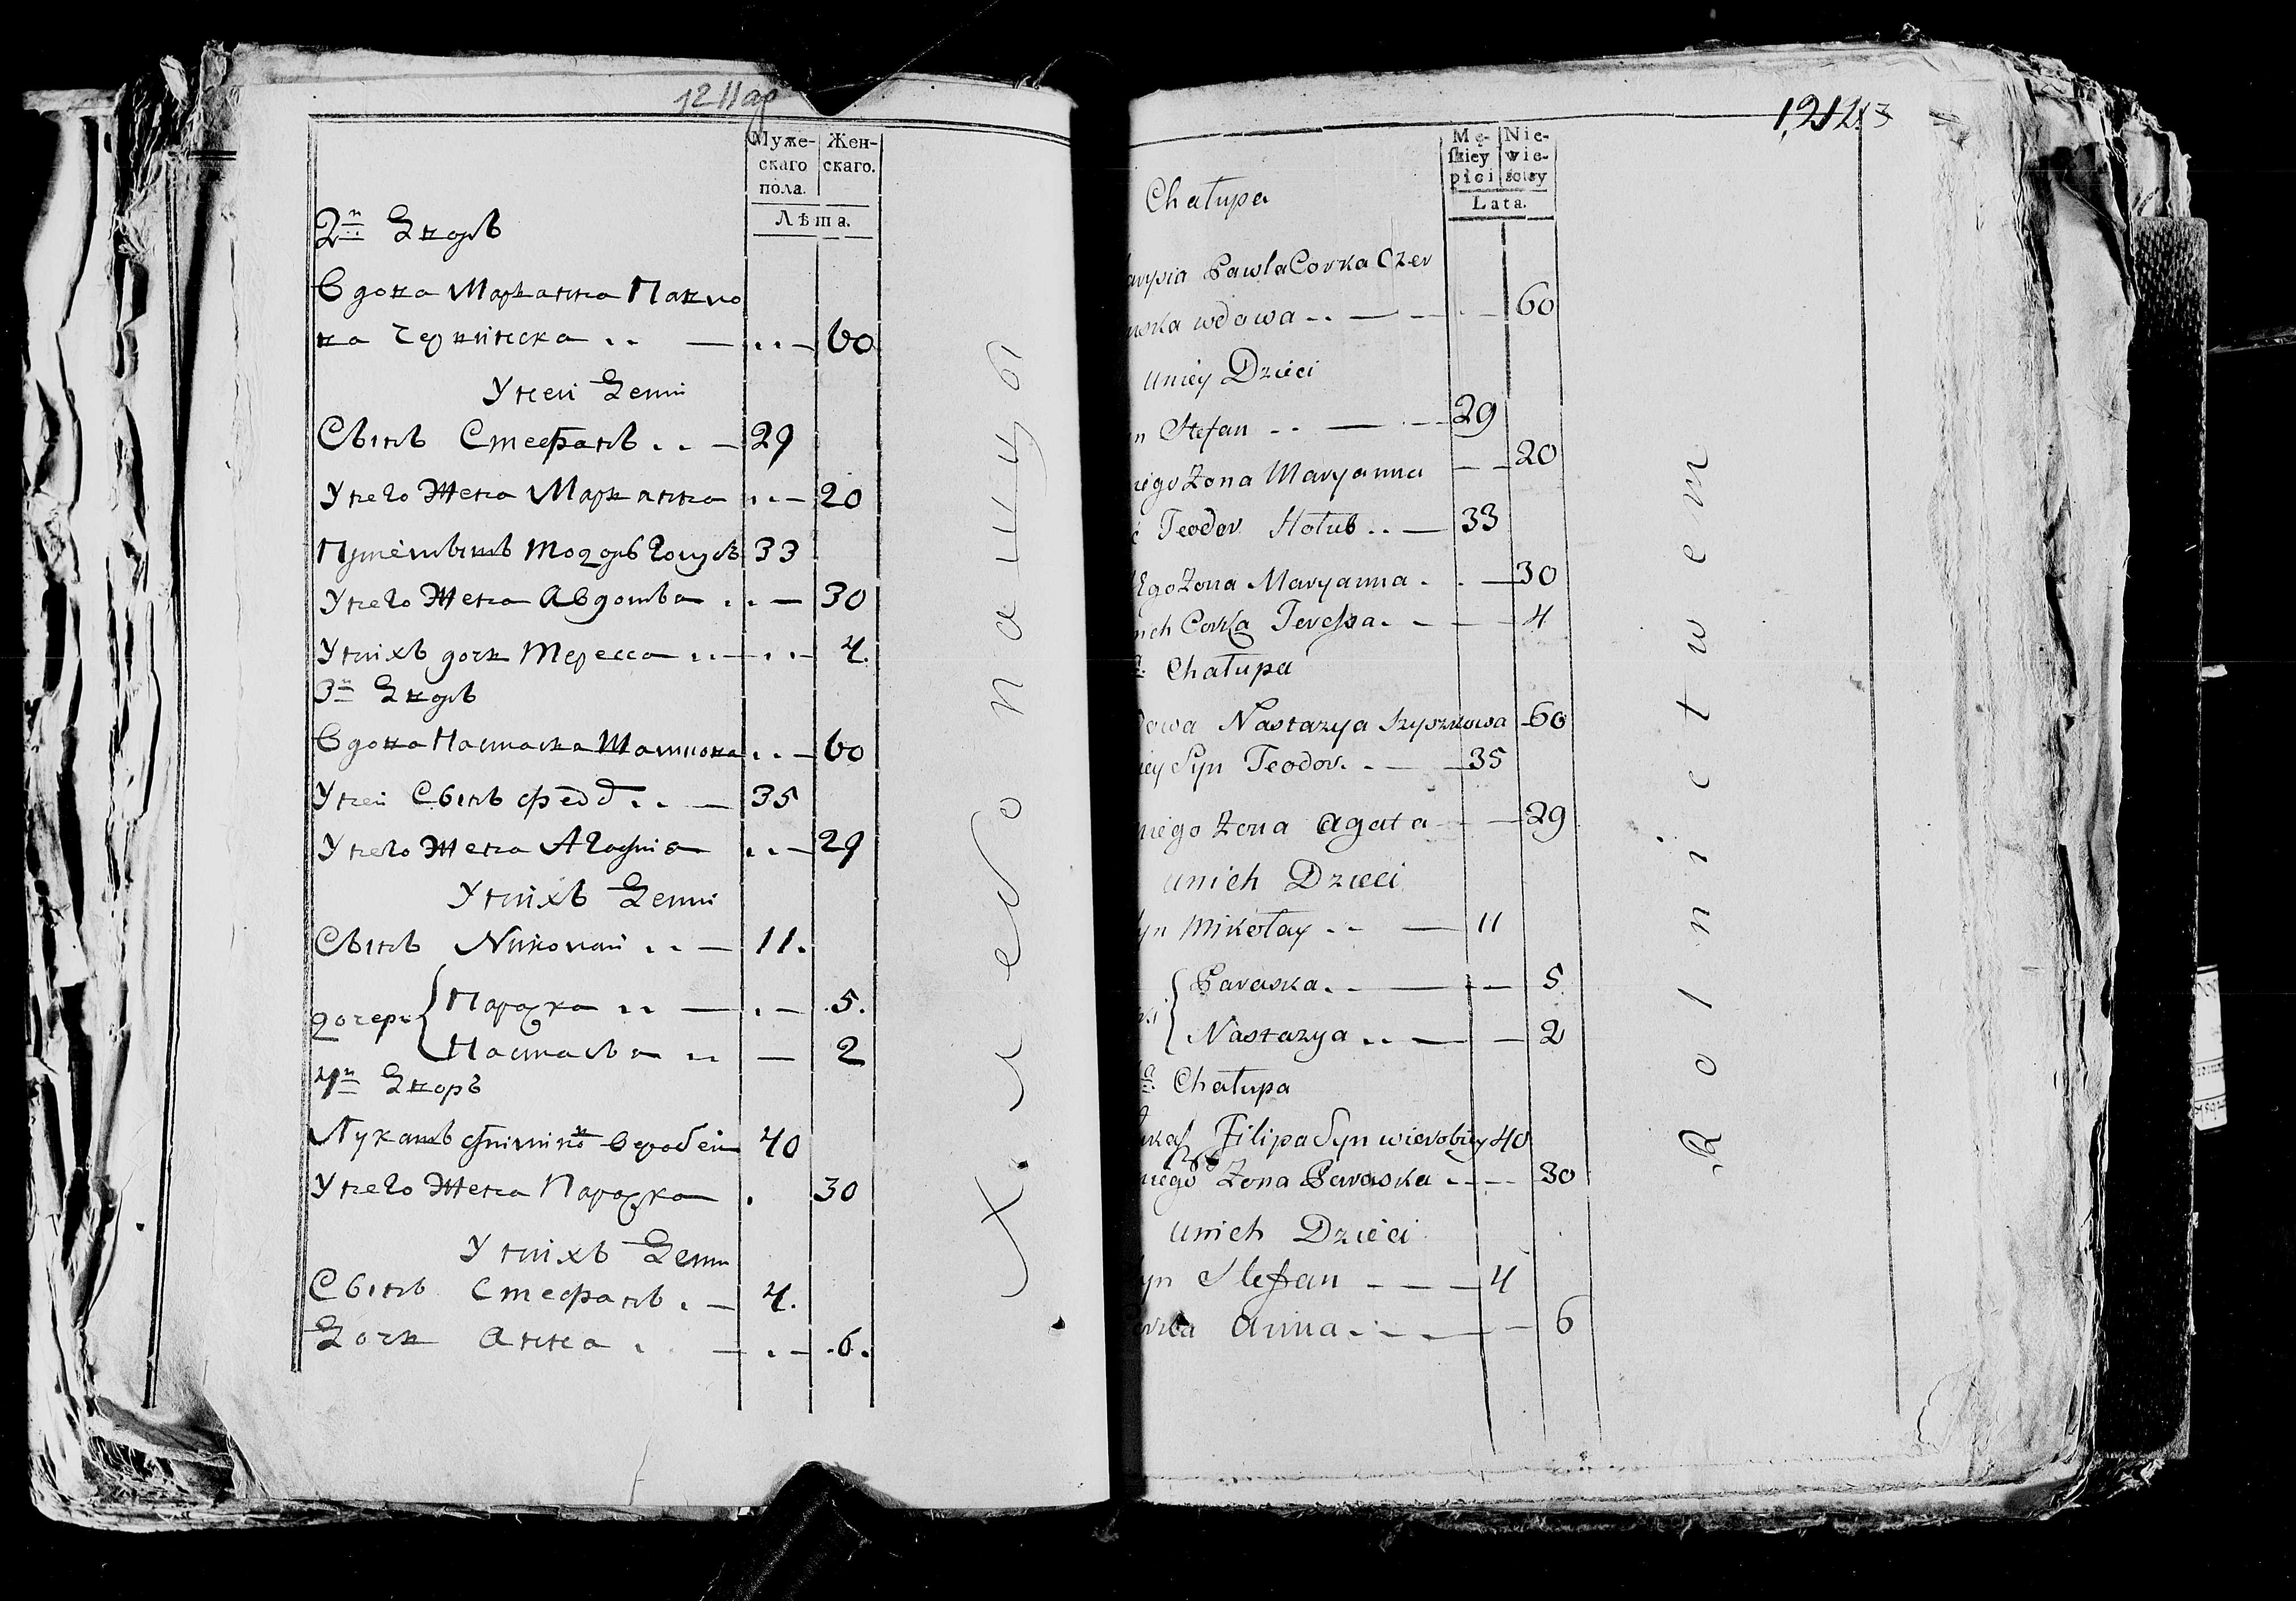 1211 ар
Муже-
скаго
пола.
Жен-
скаго.
Лѣта.
2й Дворъ
Вдова Марьанна Павло
ва Червинска .. — .. — 60
У ней Дети
Сынъ Стефанъ .. — 29
У него Жена Марьанна .. — 20
Тодоръ Голубъ 33
У него Жена Авдотьа .. — 30
У нихъ дочь Тересса .. — .. — 4.
3й Дворъ
Вдова Настасьа .. — 60
У ней Сынъ Федд .. — 35
У него Жена Агафиа .. — 29
У нихъ Дети
Сынъ Николай .. — 11.
дочери { Параска .. — .. — 5.
Настасьа .. — 2
4й Дворъ
Лукашъ Веробей 40
У него Жена Параска . 30
У нихъ Дети
Сынъ Стефанъ . — 4.
Дочь Анна . — .. — .6.
Хлебопашцы
1212.3
Mę-
skiey
płci
Nie-
wie-
sciey
Lata.
Chałupa
Pawła Corka Czer
wdowa .. — — 60
uniey Dzieci
Stefan .. — — 29
Zona Maryanna — — 20
Teodor Hołub .. — 33
Ego Zona Maryanna . . — 30
Corka Teressa . — — 4
Chałupa
Nastazya Szyszkowa 60
Syn Teodor . — 35
niego Zona Agata — — 29
unich Dzieci
Mikołay .. — 11
{ Paraska . — — 5
Nastazya .. — — 2
a Chałupa
Filipa Syn wierobiey 40
niego Zona Paraska .— — 30
unich Dzieci
Stefan — — — 4
Anna . — — — 6
Rolnictwem